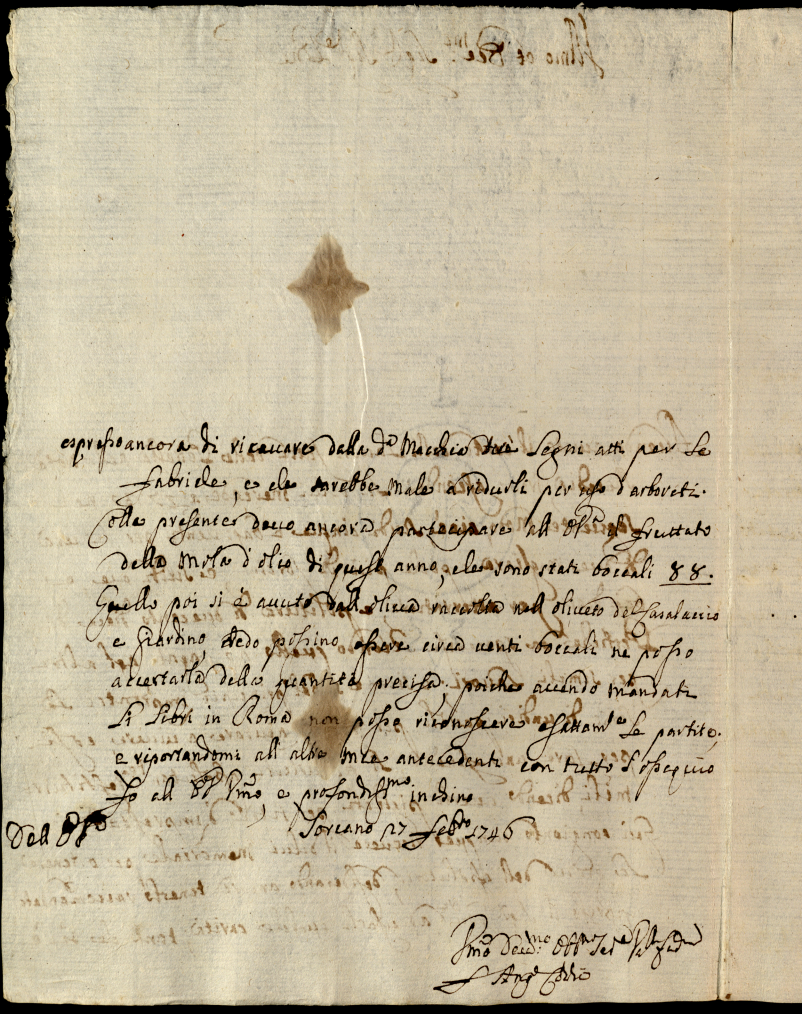 espresso ancora di ricavare dalla d.a Macchia tutti Legni atti per le
fabriche, e che sarebbe male a ridurli per uso d'arboreti.
Colla presente devo ancora partecipare all' il fruttato
della Mola d'olio di quest anno, che sono stati boccali 88.
Quello poi si è avuto dall oliva raccolta nell oliveto del Casalaccio
e Giardino, credo possino essere circa venti boccali ne posso
accertarla della quantità precisa, poiche avendo mandati
Li Libri in Roma non posso riconoscere esattam.te le partite,
e riportandomi all altre mie antecedenti con tutto l'ossequio
fo all P.mo, e profondiss.mo inchino
Dell
Soreano 27 Feb.ro 1746